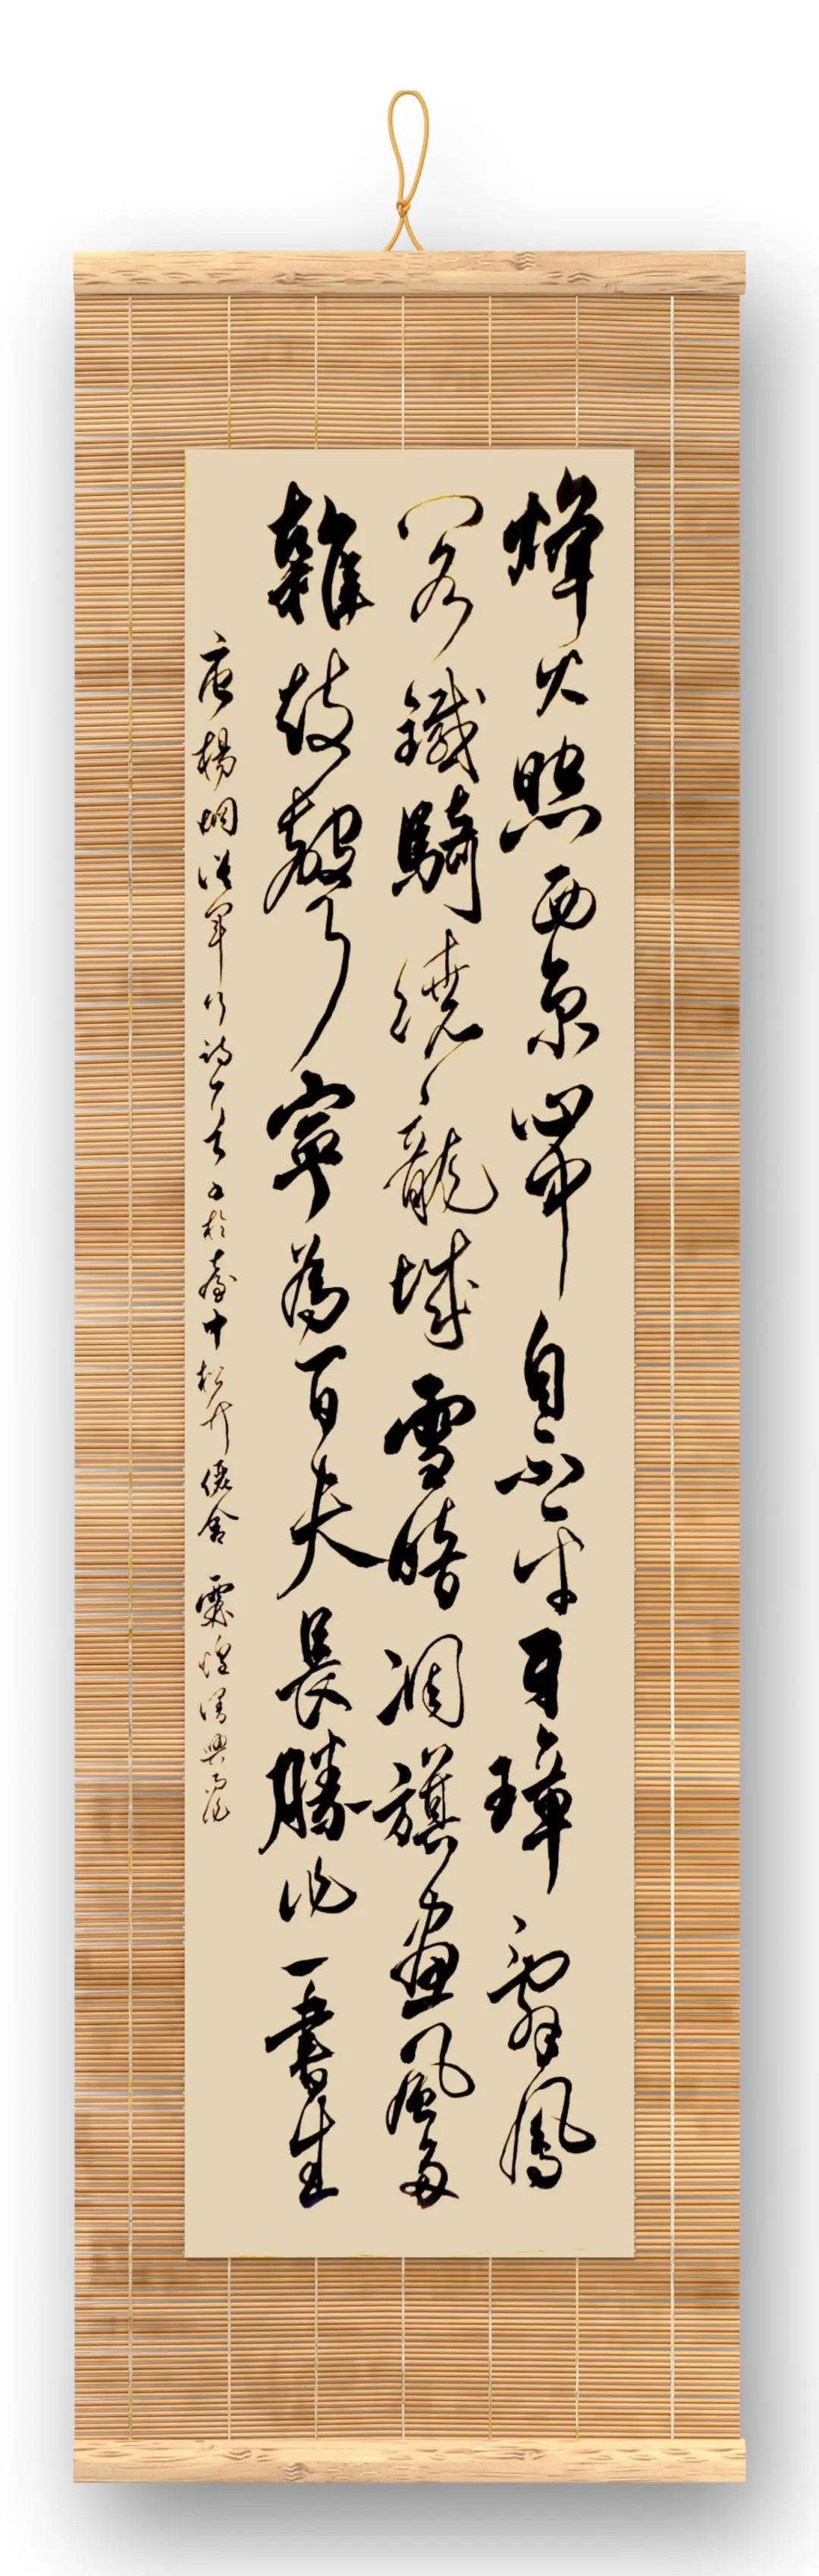 烽火照西京心中自不平牙璋辭鳳
闕鐵騎繞龍城雪暗凋旗畫風多
雜鼓聲寧為百夫長勝作一書生
唐楊炯從軍行詩一首書於臺中松竹